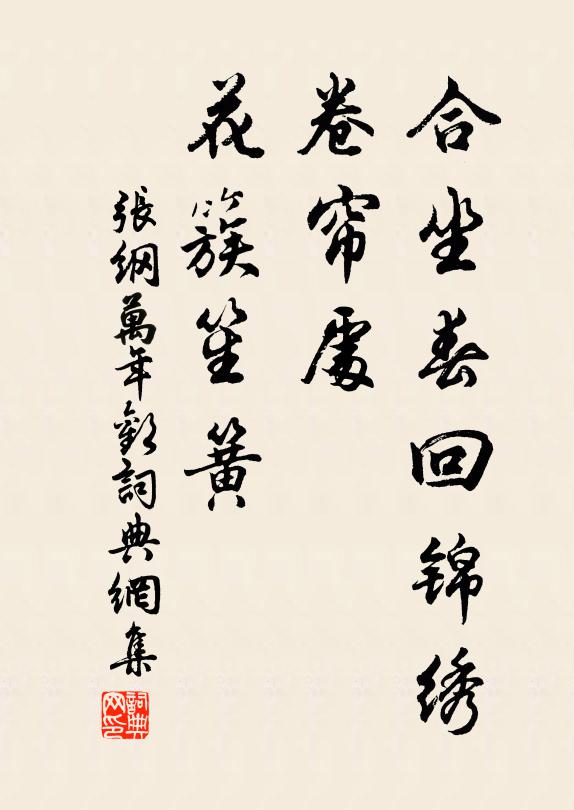 合坐春回锦绣
卷帘處
花簇笙簧
張綱萬年歡詞典網集
詞典网印